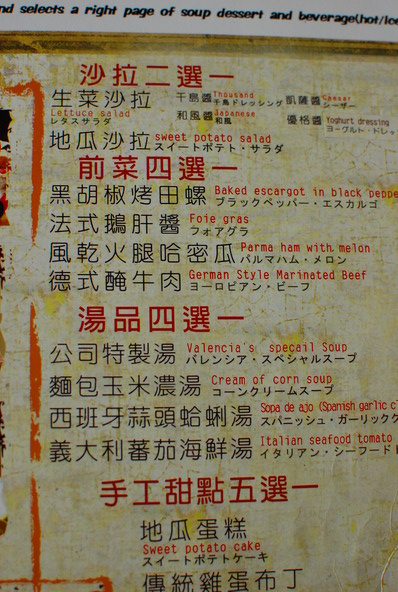 nd selects a right page of soup dessert and beverage(hot/Ice
沙拉二選一
生菜沙拉 千島醬 Thousand 凱薩醬 Caesar
千島ドレッシング シーザー
Lettuce salad 和風醬 Japanese 優格醬 Yoghurt dressing
レタスサラダ 和風 ヨーグルト・ドレッ
地瓜沙拉 sweet potato salad
スイートポテト・サラダ
前菜四選一
黑胡椒烤田螺 Baked escargot in black peppe
ブラックペッパー・エスカルゴ
法式鵝肝醬 Foie gras
フォアグラ
風乾火腿哈密瓜 Parma ham with melon
パルマハム・メロン
德式醃牛肉 German Style Marinated Beef
ヨーロピアン・ビーフ
湯品四選一
公司特製湯 Valencia's specail Soup
バレンシア・スペシャルスープ
麵包玉米濃湯 Cream of corn soup
コーンクリームスープ
西班牙蒜頭蛤蜊湯 Sopa de ajo (Spanish garlic c
スパニッシュ・ガーリック
義大利蕃茄海鮮湯 Italian seafood tomato
イタリアン・シーフード
手工甜點五選一
地瓜蛋糕
Sweet potato cake
スイートポテトケーキ
傳統雞蛋布丁